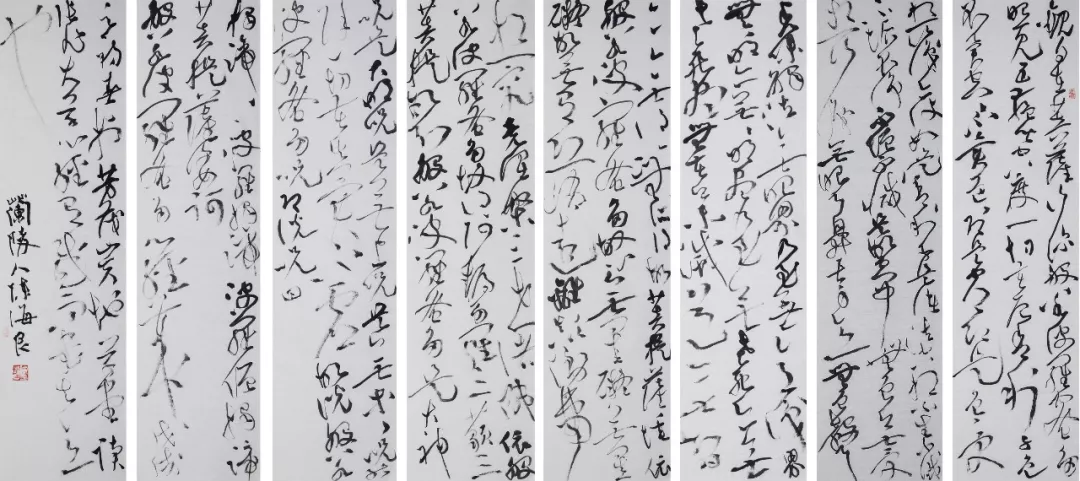 觀自在菩薩行深般若波羅蜜多時
照見五蘊皆空度一切苦厄舍利子色
不異空空不異色色即是空空即是色受
想行識亦復如是舍利子是諸法空相不生不滅
不垢不淨不增不減是故空中無色無受
想行識無眼耳鼻舌身意無色聲
香味觸法無眼界乃至無意識界
無無明亦無無明盡乃至無老死亦無
老死盡無苦集滅道無智
亦無得以無所得故菩提薩埵依
般若波羅蜜多故心無罣礙無罣
礙故無有恐怖遠離顛倒夢
想究竟涅槃三世諸佛依般
若波羅蜜多故得阿耨多羅三藐三
菩提故知般若波羅蜜多是大神
咒是大明咒是無上咒是無等等咒能
除一切苦真實不虛故說般若
波羅蜜多咒即說咒曰
揭諦揭諦波羅揭諦波羅僧揭諦
菩提薩婆訶
般若波羅蜜多心經戊戌
之初春於芳茂堂讀
大心經有感而書之
也
蘭陵人陳海良